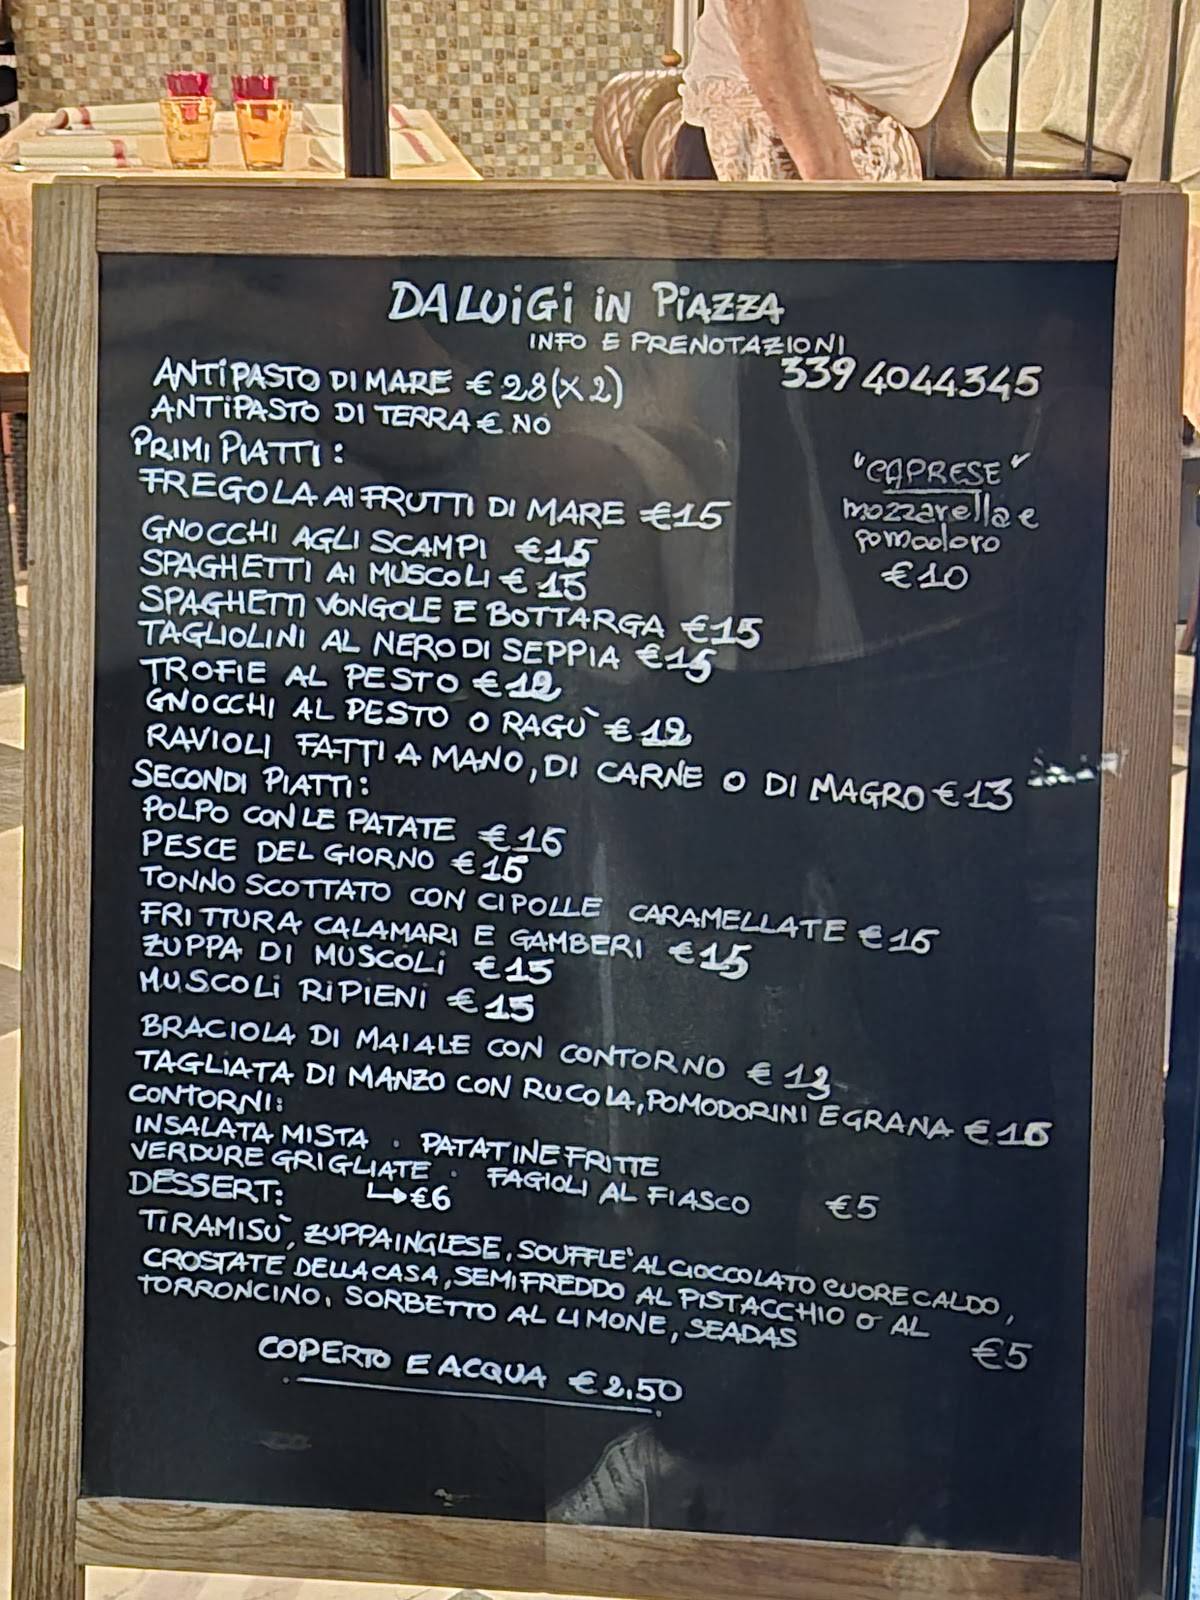 DA LUIGI IN PIAZZA
INFO E PRENOTAZIONI
339 4044345
ANTIPASTO DI MARE € 28 (X 2)
ANTIPASTO DI TERRA € NO
"CAPRESE"
mozzarella e
pomodoro
€10
PRIMI PIATTI:
FREGOLA AI FRUTTI DI MARE €15
GNOCCHI AGLI SCAMPI €15
SPAGHETTI AI MUSCOLI € 15
SPAGHETTI VONGOLE E BOTTARGA €15
TAGLIOLINI AL NERO DI SEPPIA €15
TROFIE AL PESTO €12
GNOCCHI AL PESTO O RAGÙ €12
RAVIOLI FATTI A MANO, DI CARNE O DI MAGRO €13
SECONDI PIATTI:
POLPO CON LE PATATE €16
PESCE DEL GIORNO €16
TONNO SCOTTATO CON CIPOLLE CARAMELLATE €16
FRITTURA CALAMARI E GAMBERI €15
ZUPPA DI MUSCOLI €15
MUSCOLI RIPIENI €15
BRACIOLA DI MAIALE CON CONTORNO €
TAGLIATA DI MANZO CON RUCOLA, POMODORINI E GRANA €
CONTORNI:
INSALATA MISTA . PATATINE FRITTE
VERDURE GRIGLIATE . FAGIOLI AL FIASCO €5
↳€6
DESSERT:
TIRAMISÙ, ZUPPA INGLESE, SOUFFLE' AL CIOCCOLATO CUORE CALDO,
CROSTATE DELLA CASA, SEMIFREDDO AL PISTACCHIO O AL
TORRONCINO, SORBETTO AL LIMONE, SEADAS €5
COPERTO E ACQUA €2,50